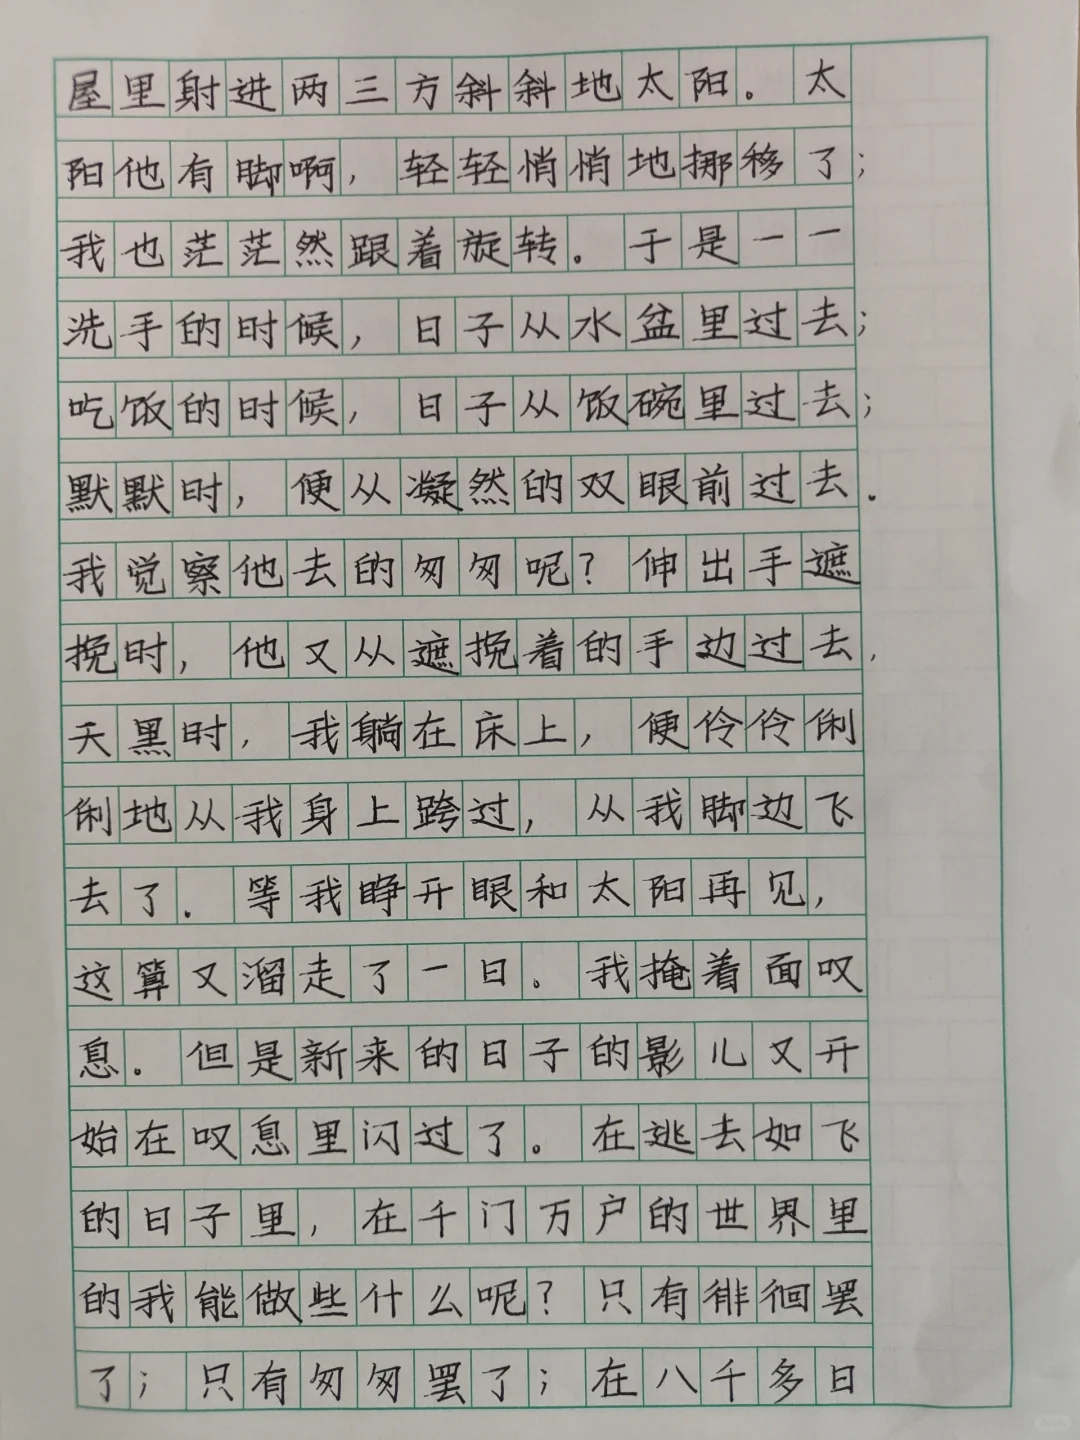 屋里射进两三方斜斜地太阳。太
阳他有脚啊，轻轻悄悄地挪移了；
我也茫茫然跟着旋转。于是一一
洗手的时候，日子从水盆里过去；
吃饭的时候，日子从饭碗里过去；
默默时，便从凝然的双眼前过去.
我觉察他去的匆匆呢？伸出手遮
挽时，他又从遮挽着的手边过去,
天黑时，我躺在床上，便伶伶俐
俐地从我身上跨过，从我脚边飞
去了.等我睁开眼和太阳再见，
这算又溜走了一日。我掩着面叹
息.但是新来的日子的影儿又开
始在叹息里闪过了。在逃去如飞
的日子里，在千门万户的世界里
的我能做些什么呢？只有徘徊罢
了；只有匆匆罢了；在八千多日